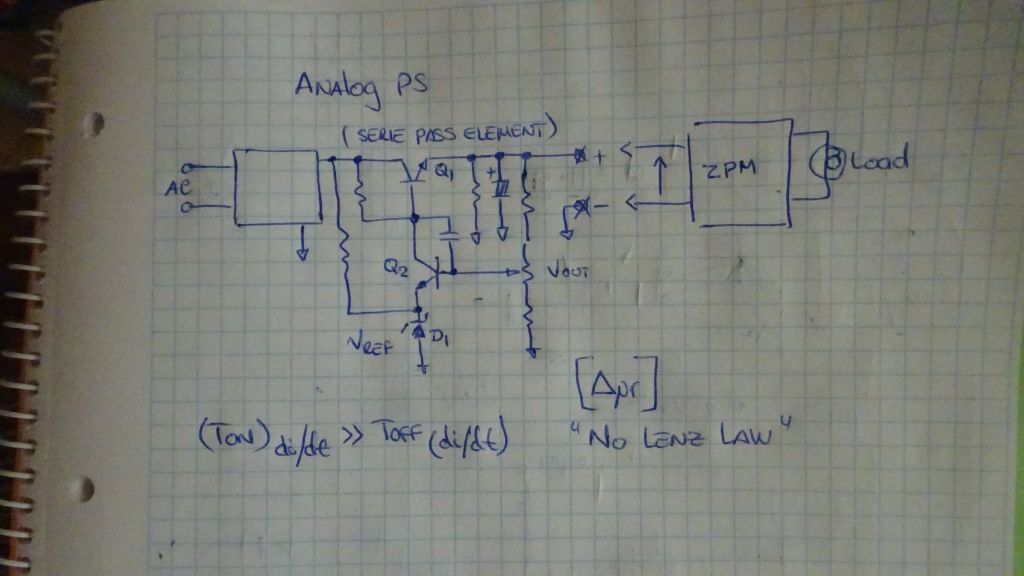 ANALOG PS
(SERIE PASS ELEMENT)
AC
Q1
+
+
ZPM
Load
-
Q2
VOUT
VREF
D1
[Δμr]
(TON) di/dt >> TOFF (di/dt)
"NO LENZ LAW"